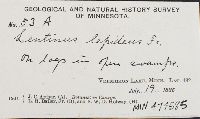 GEOLOGICAL AND NATURAL HISTORY SURVEY
OF MINNESOTA.
No. 53 A
Lentinus lepideus Fr.
On logs in open swamps.
VERMILION LAKE, MINN., Lat. 48°
July 19. 1886
Coll. J. C. Arthur (A),
L. H. Bailey, Jr. (B), and E. W. D. Holway (H)
MIN 477585